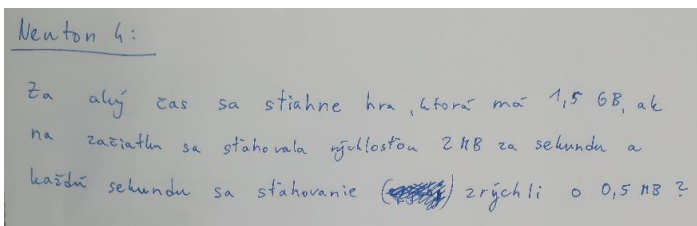 Newton 4:
Za aký čas sa stiahne hra, ktorá má 1,5 GB, ak
na začiatku sa sťahovala rýchlosťou 2 MB za sekundu a
každú sekundu sa sťahovanie () zrýchli o 0,5 MB ?